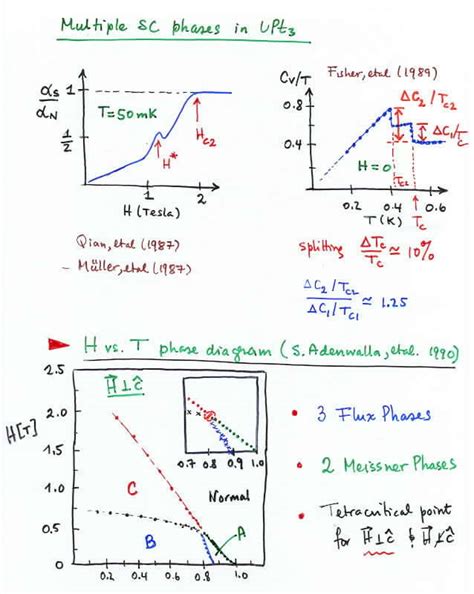 Multiple SC phases in UPt3
αs/αN
1
1/2
T=50mK
H*
Hc2
1
2
H (Tesla)
Qian, etal (1987)
– Müller, etal (1987)
Cv/T
Fisher, etal (1989)
0.8
0.4
ΔC2/Tc2
ΔC1/Tc
H=0
Tc2
0.2 0.4 0.6
T(K) Tc
splitting ΔTc/Tc ≃ 10%
ΔC2/Tc2 / ΔC1/Tc1 ≃ 1.25
H vs. T phase diagram (S. Adenwalla, etal. 1990)
2.5
2.0
1.5
1.0
0.5
0
H[T]
H⃗⊥ĉ
0.7 0.8 0.9 1.0
Normal
C
B
A
0.2 0.4 0.6 0.8 1.0
• 3 Flux Phases
• 2 Meissner Phases
• Tetracritical point
for H⃗⊥ĉ & H⃗⊥̸ĉ